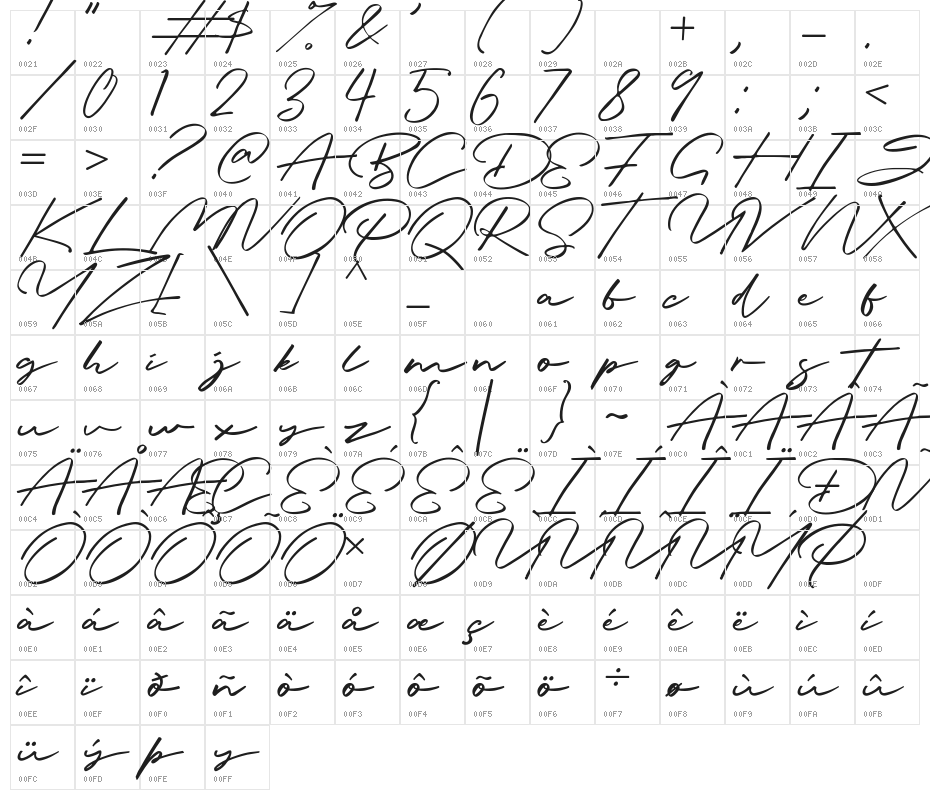 ! " # $ % & ' ( ) + , - .
0021 0022 0023 0024 0025 0026 0027 0028 0029 002A 002B 002C 002D 002E
/ 0 1 2 3 4 5 6 7 8 9 : ; <
002F 0030 0031 0032 0033 0034 0035 0036 0037 0038 0039 003A 003B 003C
= > ? @ A B C D E F G H I J
003D 003E 003F 0040 0041 0042 0043 0044 0045 0046 0047 0048 0049 004A
K L M N O P Q R S T U V W X
004B 004C 004D 004E 004F 0050 0051 0052 0053 0054 0055 0056 0057 0058
Y Z [ \ ] ^ _ a b c d e f
0059 005A 005B 005C 005D 005E 005F 0060 0061 0062 0063 0064 0065 0066
g h i j k l m n o p q r s t
0067 0068 0069 006A 006B 006C 006D 006E 006F 0070 0071 0072 0073 0074
u v w x y z { | } ~ À Á Â Ã
0075 0076 0077 0078 0079 007A 007B 007C 007D 007E 00C0 00C1 00C2 00C3
Ä Å Æ Ç È É Ê Ë Ì Í Î Ï Ð Ñ
00C4 00C5 00C6 00C7 00C8 00C9 00CA 00CB 00CC 00CD 00CE 00CF 00D0 00D1
Ò Ó Ô Õ Ö × Ø Ù Ú Û Ü Ý Þ
00D2 00D3 00D4 00D5 00D6 00D7 00D8 00D9 00DA 00DB 00DC 00DD 00DE 00DF
à á â ã ä å æ ç è é ê ë ì í
00E0 00E1 00E2 00E3 00E4 00E5 00E6 00E7 00E8 00E9 00EA 00EB 00EC 00ED
î ï ð ñ ò ó ô õ ö ÷ ø ù ú û
00EE 00EF 00F0 00F1 00F2 00F3 00F4 00F5 00F6 00F7 00F8 00F9 00FA 00FB
ü ý þ ÿ
00FC 00FD 00FE 00FF